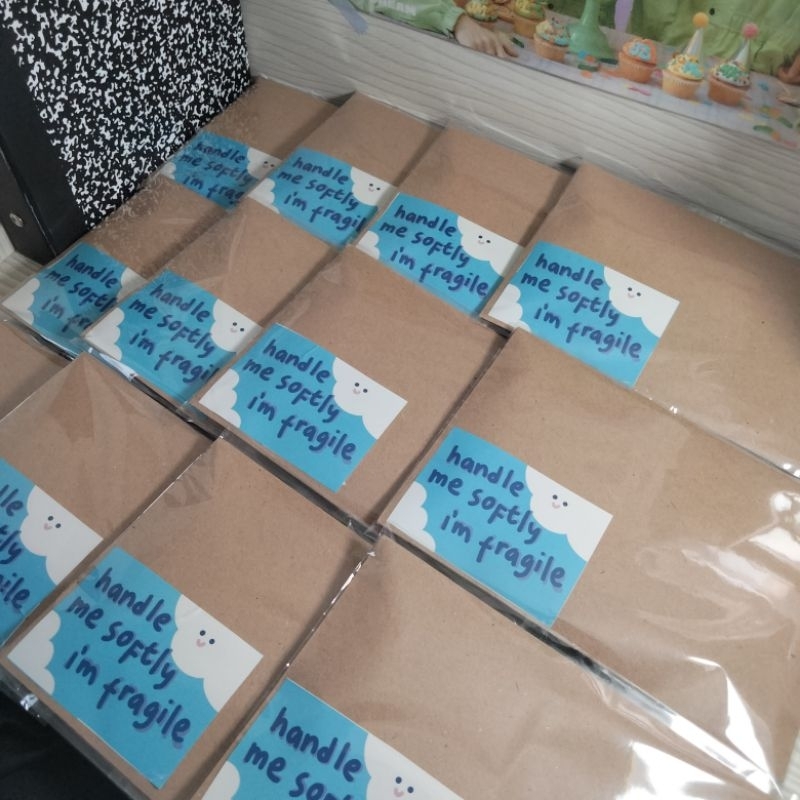 handle
me softly
i'm frag
handle
me softly
i'm fragil
handle
me softly
i'm fragile
handle
me softly
i'm fragile
handle
me soft
i'm f
handle
me softly
i'm fragil
handle
me softly
i'm fragile
handle
me softly
i'm fragile
handle
me softly
i'm fragile
handle
me softly